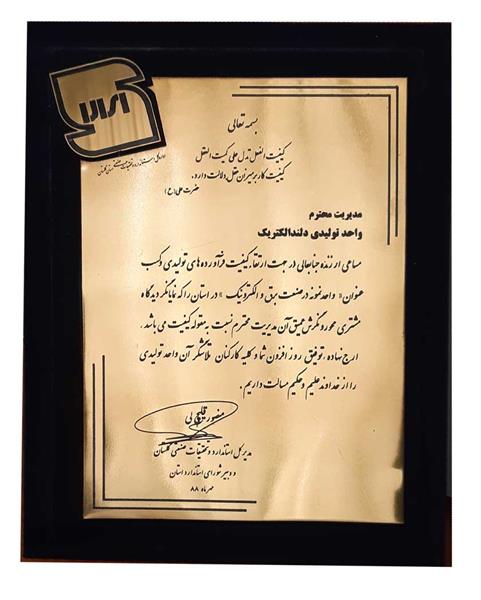 اداره کل استاندارد و تحقیقات صنعتی استان گلستان
بسمه تعالی
کیفیت العمل تدل علی کمیت العقل
کیفیت کار بر میزان عقل دلالت دارد.
حضرت علی (ع)
مدیریت محترم
واحد تولیدی دلندالکتریک
مساعی ارزنده جنابعالی در جهت ارتقاء کیفیت فرآورده های تولیدی و کسب
عنوان « واحد نمونه در صنعت برق و الکترونیک » در استان را که نمایانگر دیدگاه
مشتری محور و نگرش عمیق آن مدیریت محترم نسبت به مقوله کیفیت می باشد ،
ارج نهاده ، توفیق روز افزون شما و کلیه کارکنان تلاشگر آن واحد تولیدی
را از خداوند علیم و حکیم مسالت داریم .
منصور قلیچ لی
مدیر کل استاندارد و تحقیقات صنعتی گلستان
و دبیر شورای استاندارد استان
مهر ماه ۸۸